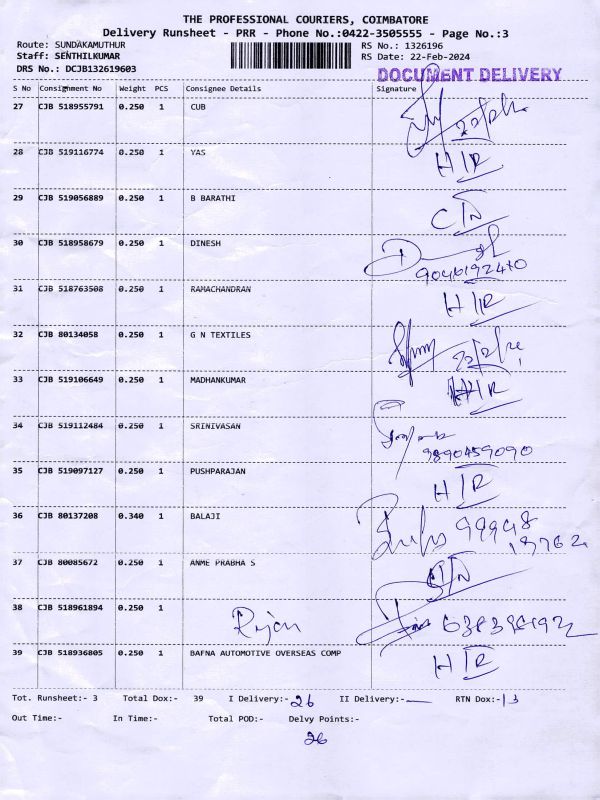 THE PROFESSIONAL COURIERS, COIMBATORE
Delivery Runsheet - PRR - Phone No.:0422-3505555 - Page No.:3
Route: SUNDAKAMUTHUR RS No.: 1326196
Staff: SENTHILKUMAR RS Date: 22-Feb-2024
DRS No.: DCJB132619603 DOCUMENT DELIVERY
S No Consignment No Weight PCS Consignee Details Signature
27 CJB 518955791 0.250 1 CUB
28 CJB 519116774 0.250 1 YAS H/R
29 CJB 519056889 0.250 1 B BARATHI
30 CJB 518958679 0.250 1 DINESH
31 CJB 518763508 0.250 1 RAHACHANDRAN H/R
32 CJB 80134058 0.250 1 G N TEXTILES
33 CJB 519106649 0.250 1 MADHANKUMAR H/R
34 CJB 519112484 0.250 1 SRINIVASAN
9890459090
35 CJB 519097127 0.250 1 PUSHPARAJAN H/R
36 CJB 80137208 0.340 1 BALAJI 99948
37 CJB 80085672 0.250 1 ANME PRABHA S
38 CJB 518961894 0.250 1 Rajan
39 CJB 518936805 0.250 1 BAFNA AUTOMOTIVE OVERSEAS COMP H/R
Tot. Runsheet:- 3 Total Dox:- 39 I Delivery:- 26 II Delivery:- RTN Dox:- 13
Out Time:- In Time:- Total POD:- Delvy Points:-
26